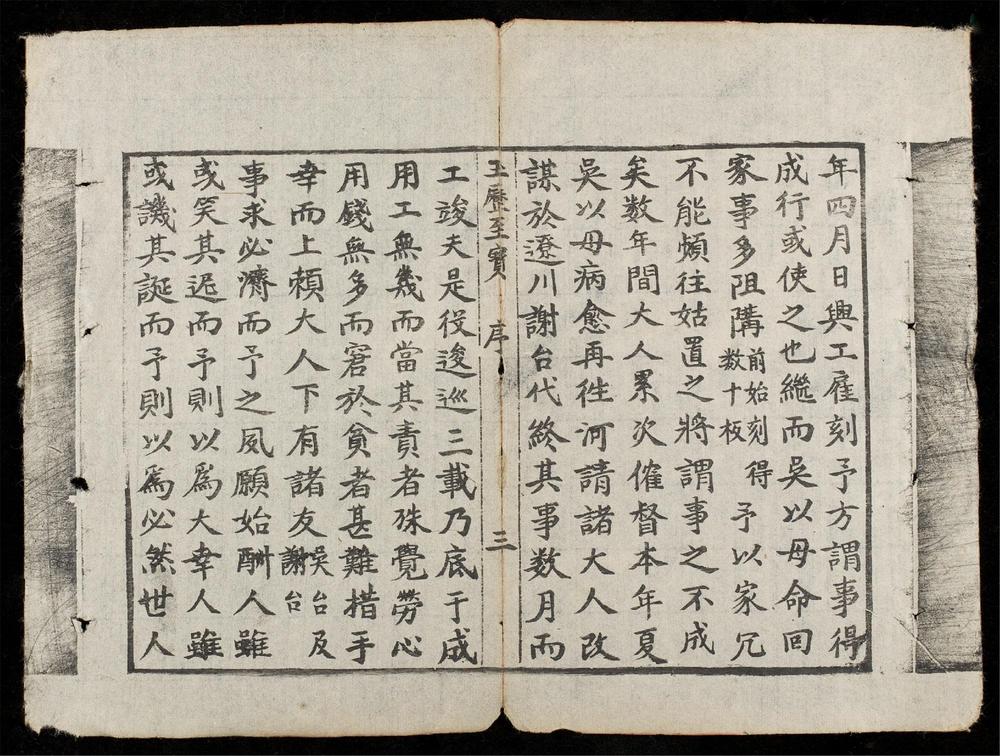 年四月日興工雇刻予方謂事得
成行或使之也繼而吳以母命回
家事多阻隣前始刻得数十板予以家冗
不能頻往姑置之將謂事之不成
矣数年間大人累次催督本年夏
吳以母病愈再徃河請諸大人改
謀於遼川謝台代終其事数月而
玉歷至寳 序 三
工竣夫是役逡巡三載乃底于成
用工無幾而當其責者殊覺勞心
用錢無多而窘於貧者甚難措手
幸而上賴大人下有諸友吳台謝台及
事求必濟而予之夙願始酬人雖
或笑其迟而予則以爲大幸人雖
或譏其誕而予則以爲必然世人